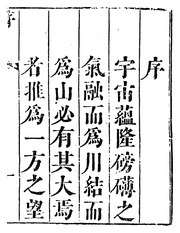 序
宇宙蘊隆磅礴之
氣融而為川結而
為山必有其大焉
者推為一方之望